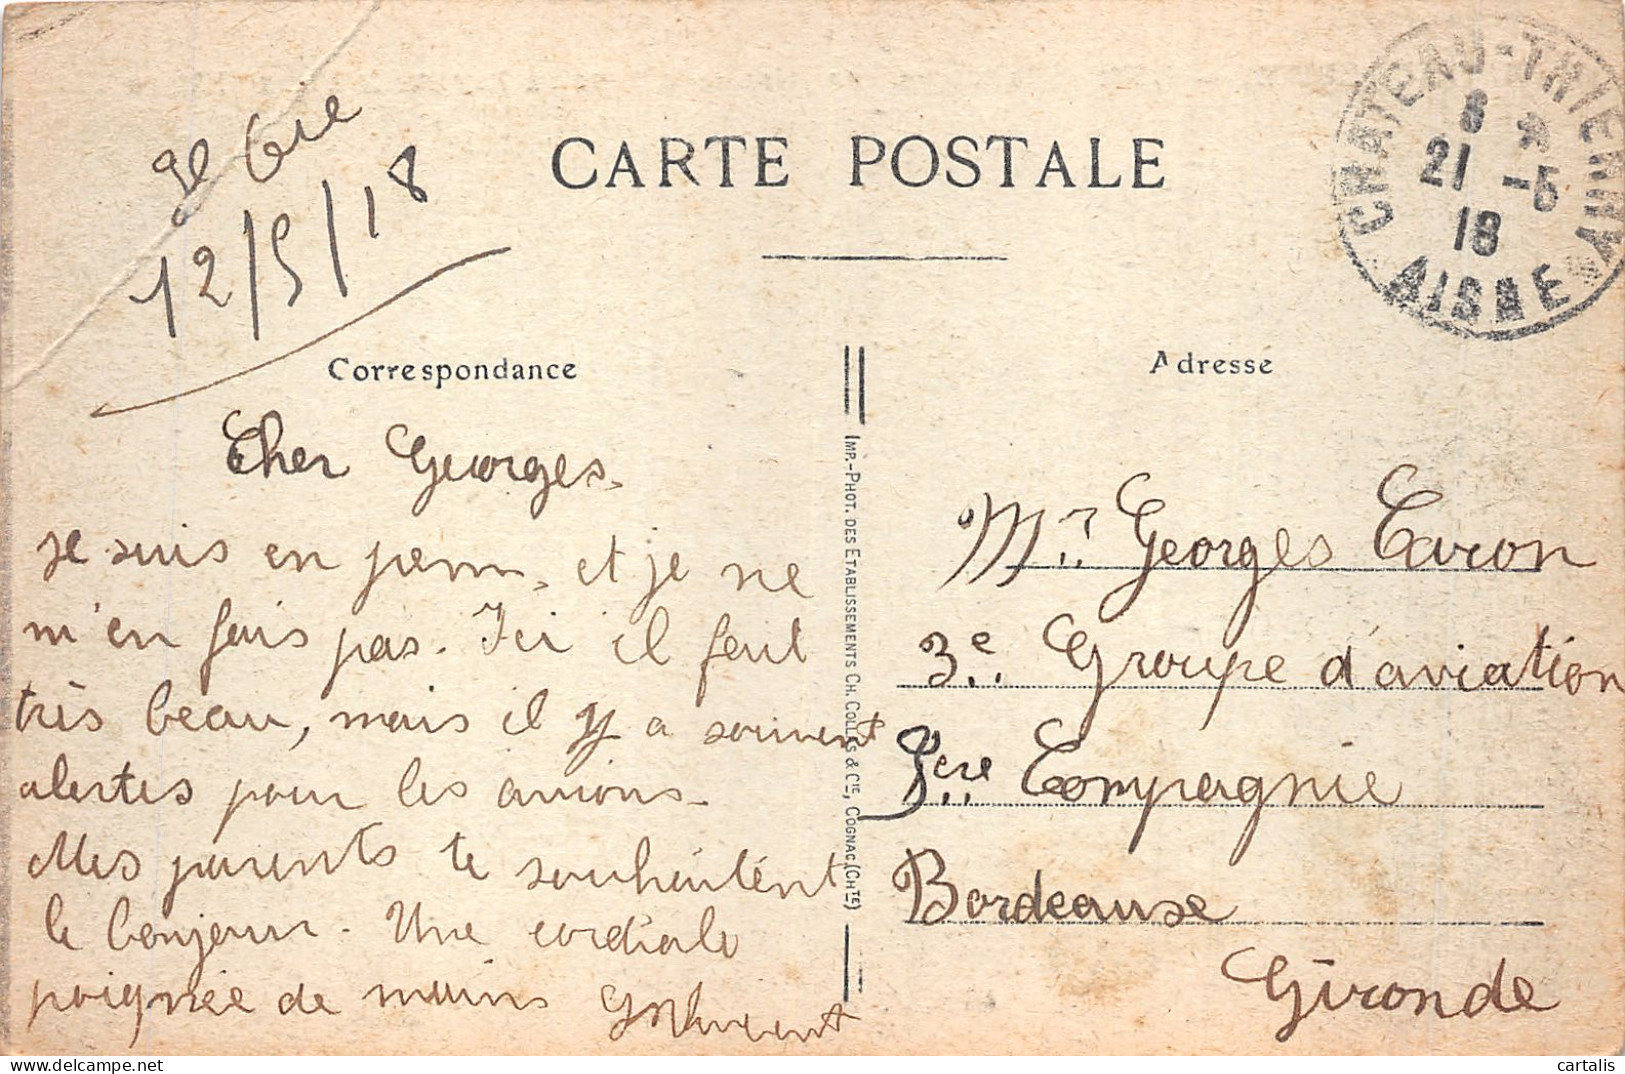 CARTE POSTALE
CHATEAU-THIERRY
8
21 -5
18
AISNE
12/5/18
Correspondance
Adresse
Cher Georges.
Je suis en perm. et je ne
m'en fais pas. Ici il fait
très beau, mais il y a souvent
alertes pour les avions.
Mes parents te souhaitent
le bonjour. Une cordiale
poignée de mains
IMP.-PHOT. DES ETABLISSEMENTS CH. COLLAS & CIE, COGNAC (CHTE)
Mr. Georges Caron
3e. Groupe d'aviation
Compagnie
Bordeaux
Gironde
cartalis